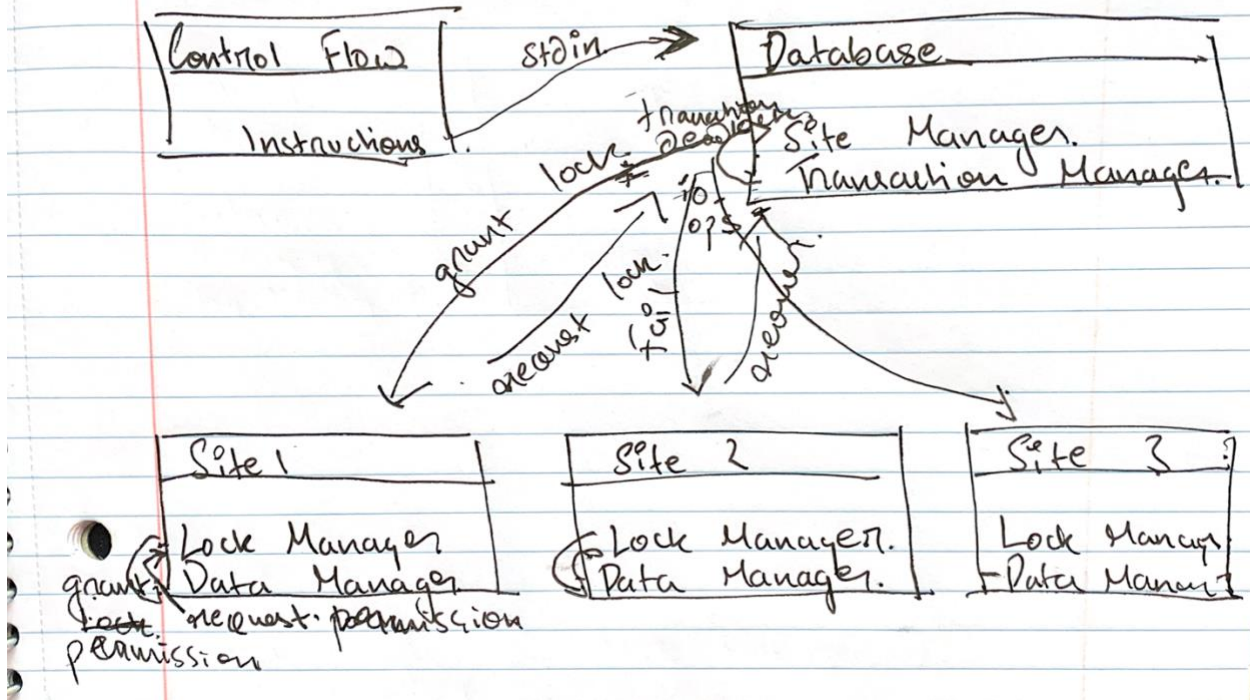 Control Flow
Instructions
stdin
Database
Site Manager.
Transaction Manager.
transaction
lock
grant
io
ops
lock
request
fail
recover.
Site 1
Lock Manager
Data Manager
grant
lock
permission
request permission
Site 2
Lock Manager.
Data Manager.
Site 3
Lock Manager
Data Manager